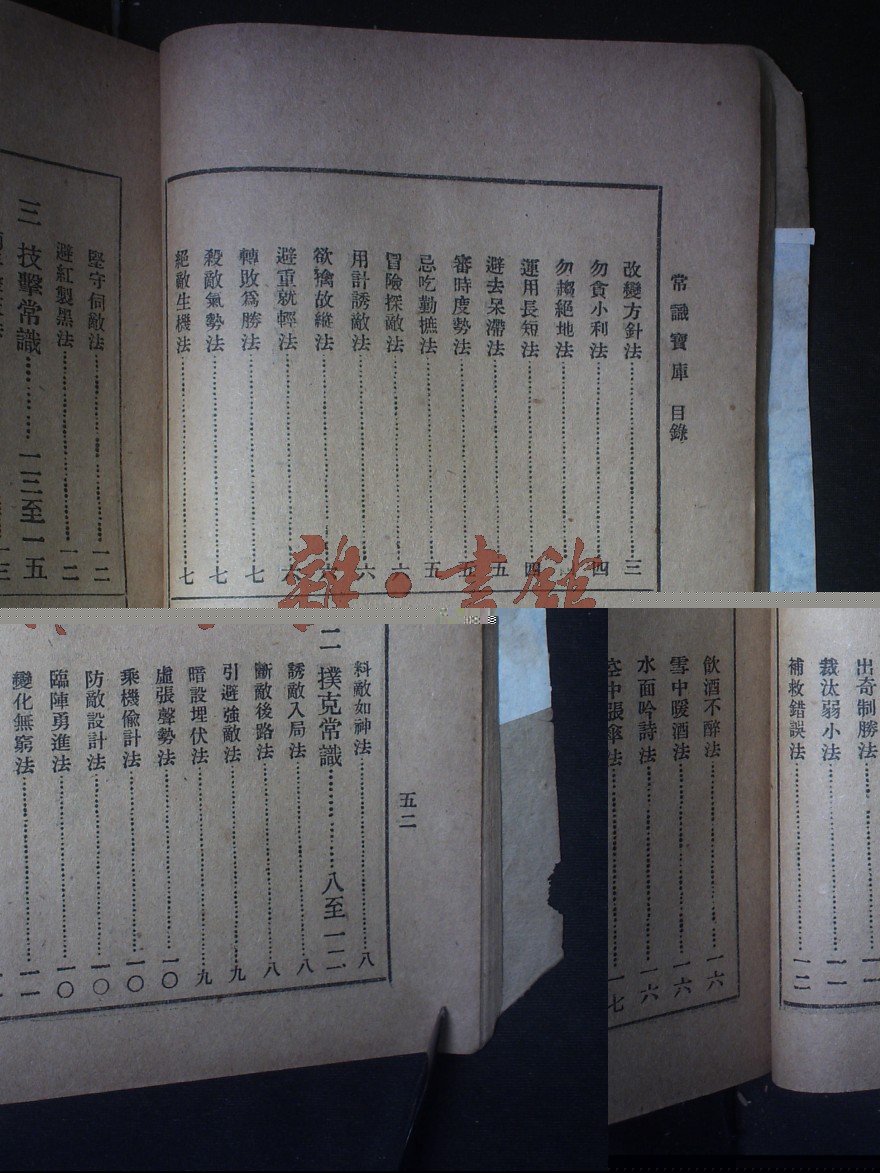 常識寶庫 目錄
改變方針法 三
勿貪小利法 四
勿趨絕地法
運用長短法 四
避去呆滯法 五
審時度勢法 五
忌吃勤摭法 五
冒險探敵法 六
用計誘敵法 六
欲擒故縱法 六
避重就輕法 六
轉敗爲勝法 七
殺敵氣勢法 七
絕敵生機法 七
堅守伺敵法 一二
避紅製黑法 一二
三 技擊常識 一三至一五
雜·書館
五二
料敵如神法 八
二 撲克常識 八至一二
誘敵入局法 八
斷敵後路法 八
引避強敵法 九
暗設埋伏法 九
虛張聲勢法 一〇
乘機偸計法 一〇
防敵設計法 一〇
臨陣勇進法 一〇
變化無窮法 一一
出奇制勝法
裁汰弱小法 一一
補救錯誤法 一二
飲酒不醉法 一六
雪中暖酒法 一六
水面吟詩法 一六
空中張傘法 一七